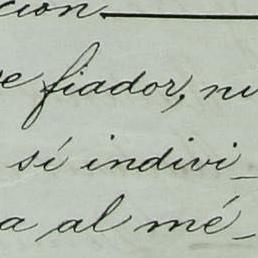 cion.
e fiador, ni
sí indivi_
a al mé_